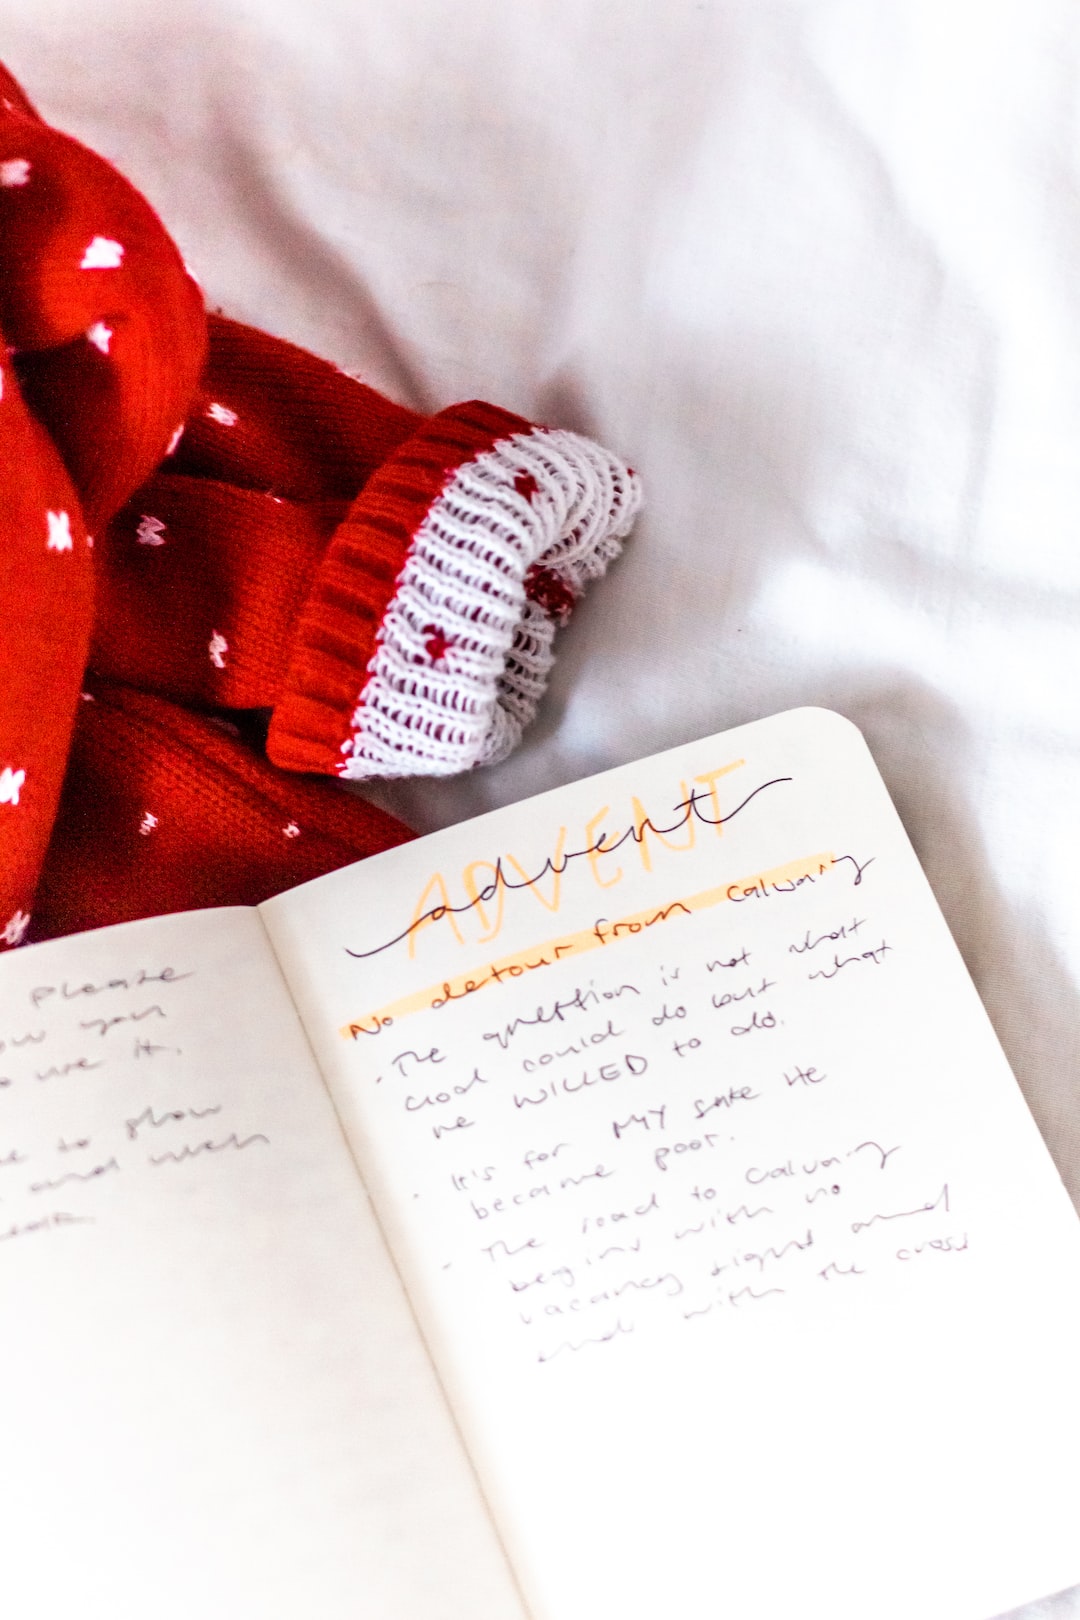 please
you
use it.
to show
and when
ADVENT
advent
No detour from Calvary
• The question is not what
God could do but what
He WILLED to do.
• It's for MY sake He
became poor.
• The road to Calvary
begins with no
vacancy signs and
ends with the cross